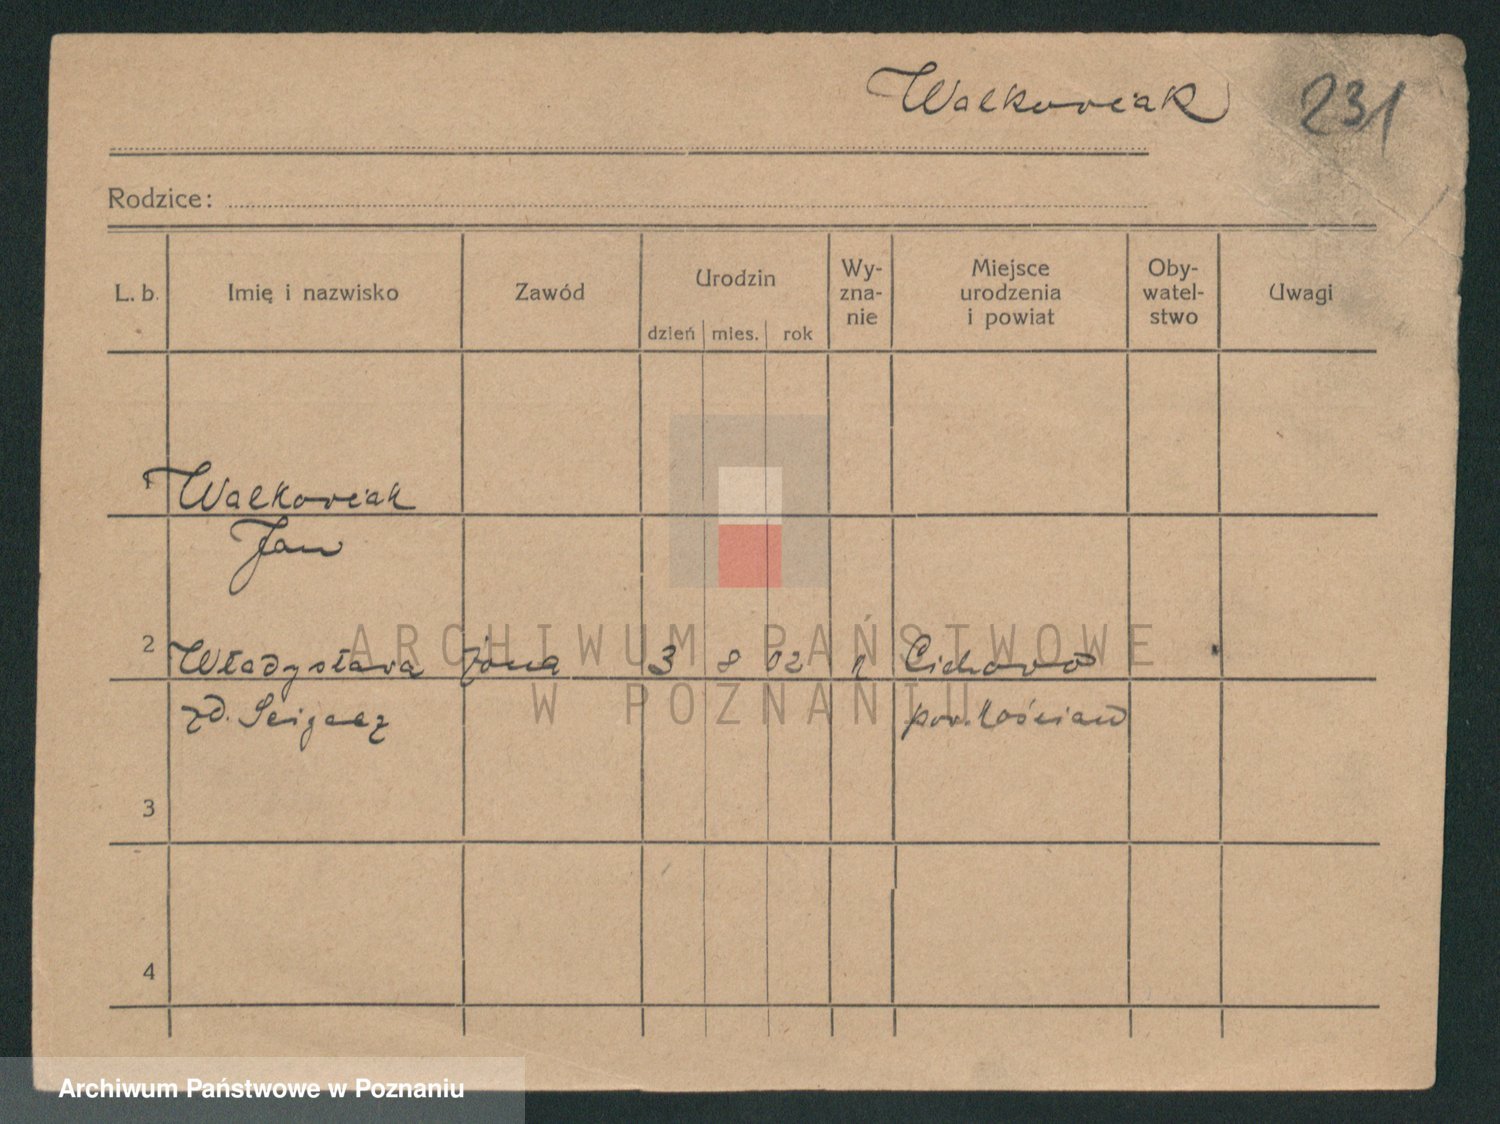 Walkowiak 231
Rodzice:
L. b. Imię i nazwisko Zawód Urodzin dzień mies. rok Wy-zna-nie Miejsce urodzenia i powiat Oby-watel-stwo Uwagi
1 Walkowiak
Jan
2 Władysława żona 3 8 02 Cichowo
zd. pow. Kościan
3
4
ARCHIWUM PAŃSTWOWE
W POZNANIU
Archiwum Państwowe w Poznaniu